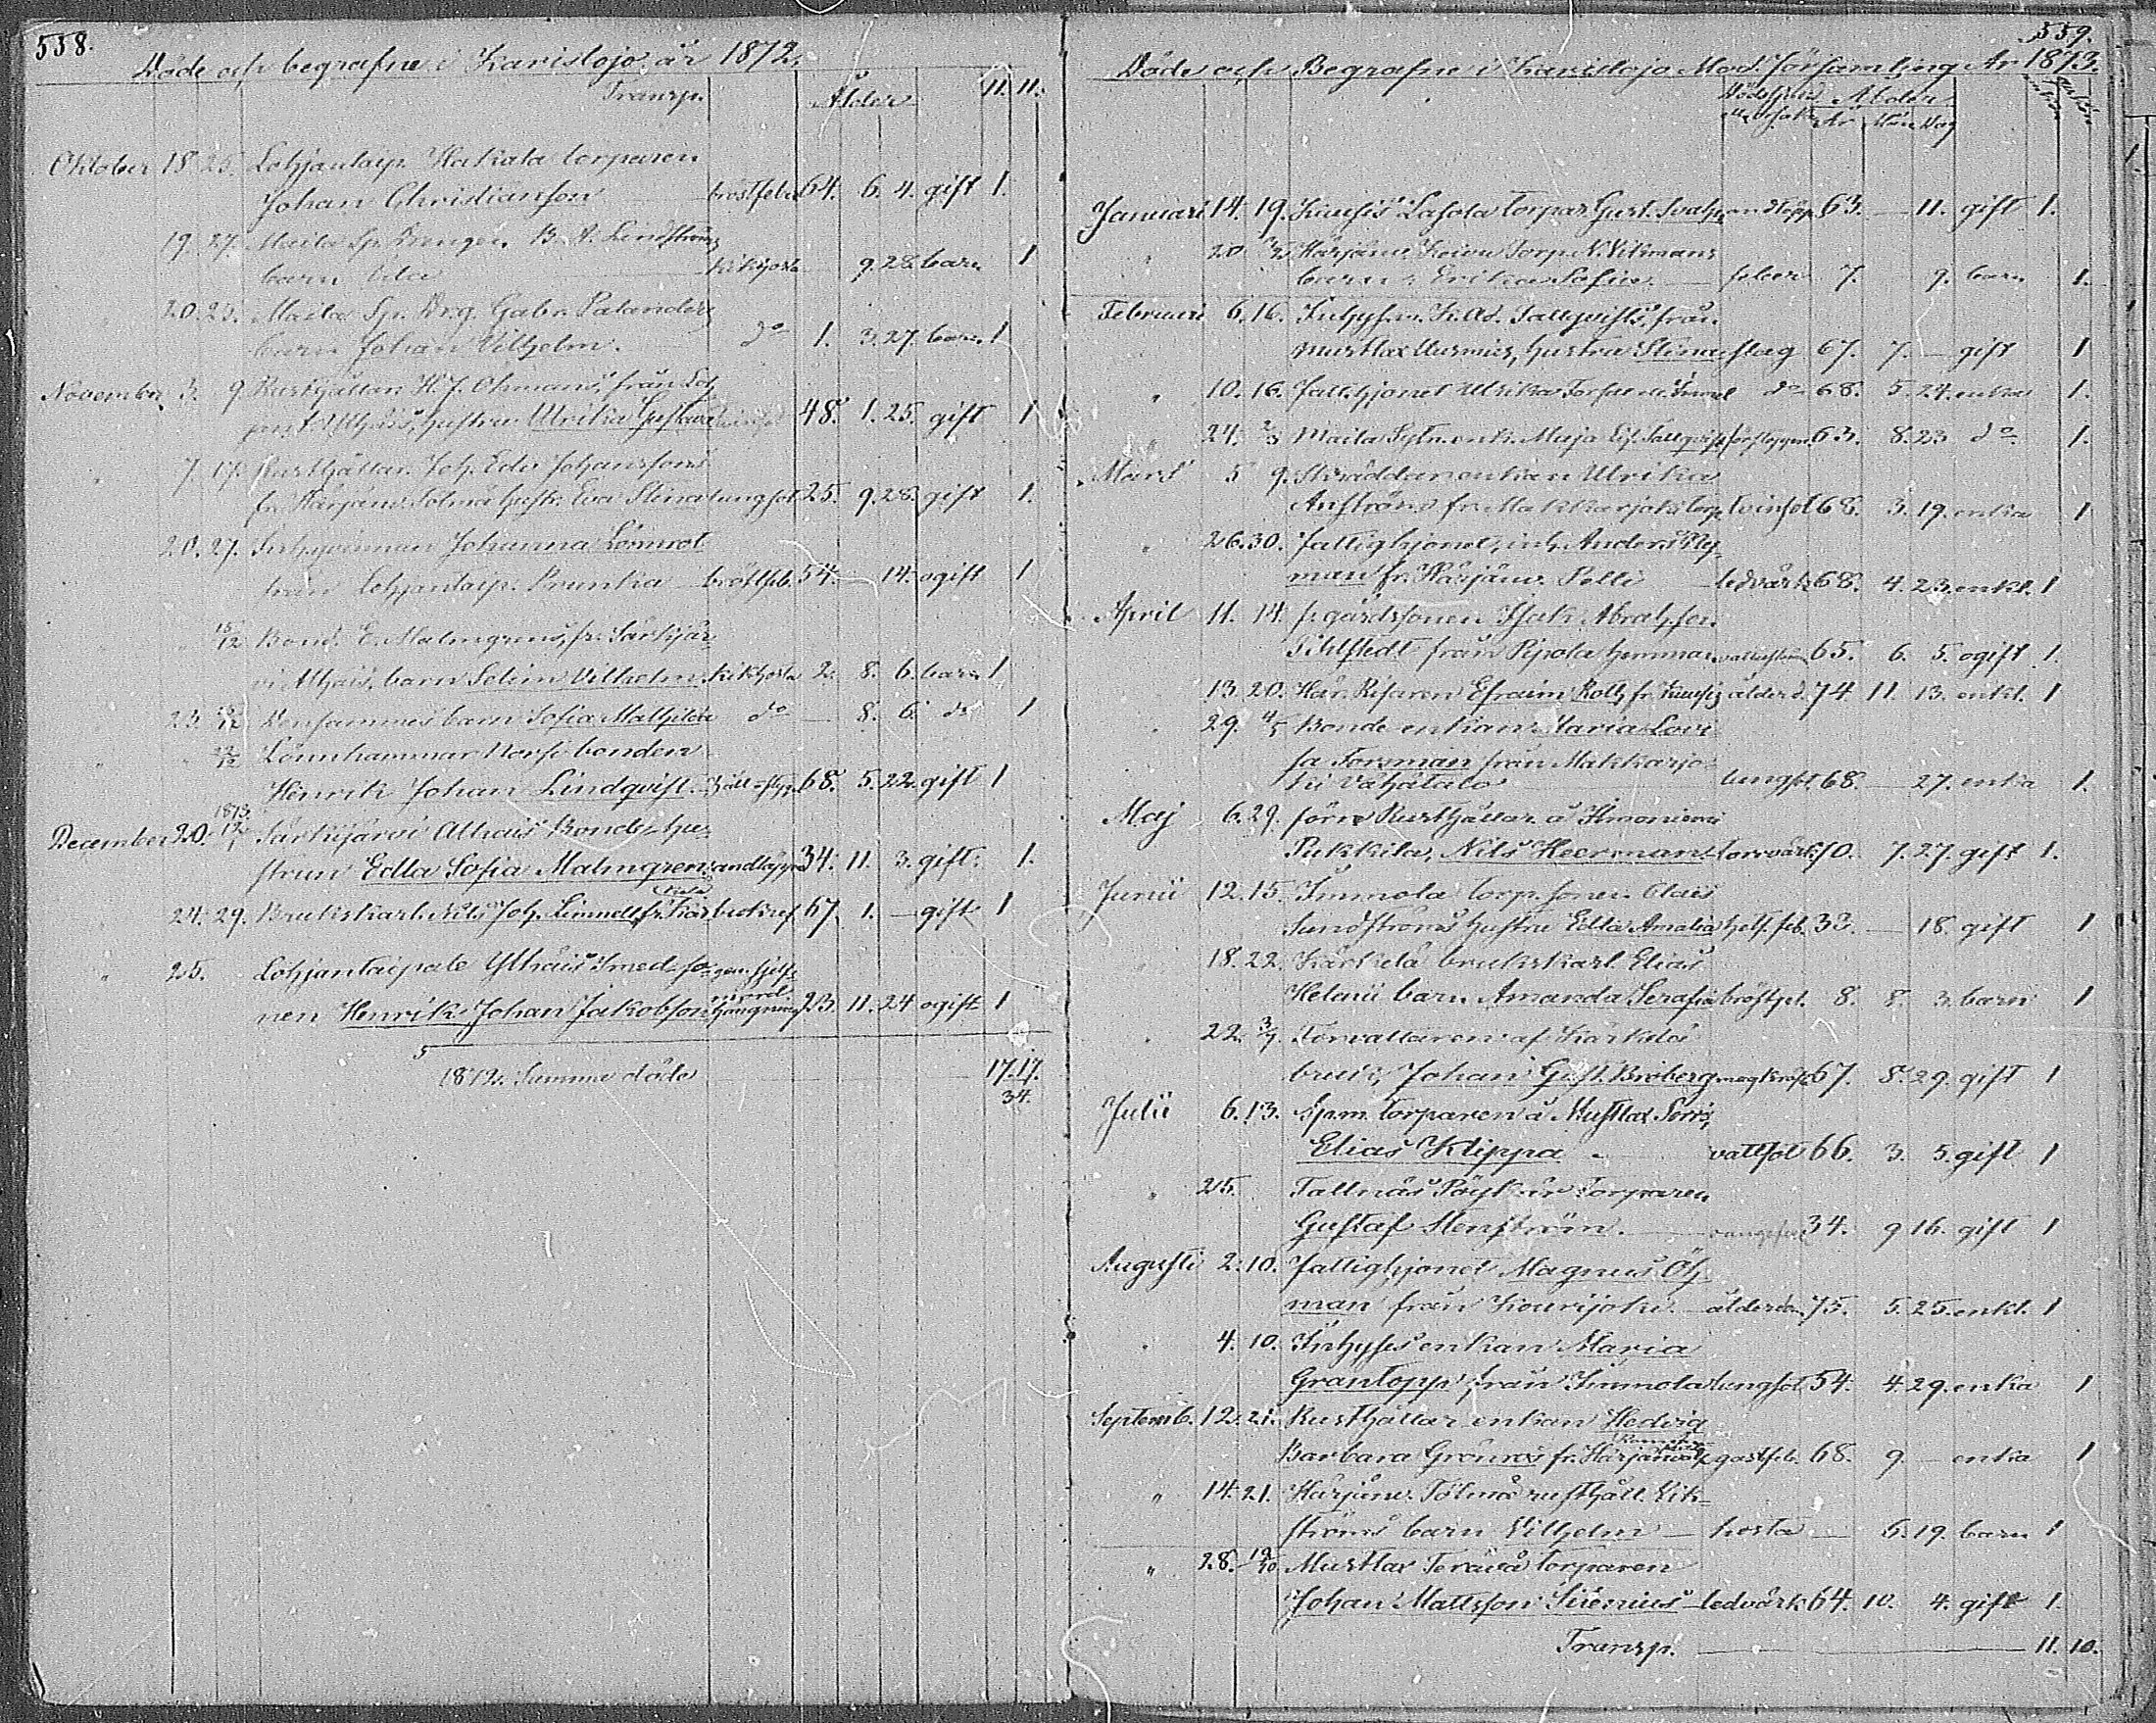 538.
Döde och begrafne i Karislojo år 1872.
Transp. Ålder 11. 11.
Oktober 18. 25. Lohjantaip. Hakala torparen
Johan Christiansson bröstfeber 64. 6. 4. gift 1.
19. 27. Maila Sp. Drengen B. A. Lindströms
barn kikhosta 9. 28. barn 1
20. 25. Maila Sp. Drg. Gabr. Palanders
barn Johan Vilhelm. do 1. 3. 27. barn 1
November 3. 9. Rusthållar. H. J. Öhmans, från Loh
hustru Ulrika Gustava 48. 1. 25. gift 1
" 7. 17. Rusthållar. Joh. Edv. Johanssons
fr. Härjänv. Tolmä hustr. Eva Stina lungsot 25. 9. 28. gift 1.
20. 27. Inhysqvinnan Johanna Lönnrot
från Lohjantaip. Prunka bröstfeb. 54. 14. ogift 1
" " 15/12 Bond. E. Malmgrens, fr. Särkijär
vi Alhais, barn Selim Vilhelm. kikhosta 2. 8. 6. barn 1
23. 15/12 Densammes barn Sofia Mathilda do — 8. 6. do 1
" " 22/12 Lönnhammar Norrs bonden
Henrik Johan Lindqvist. 68. 5. 22. gift 1
1873.
December 20. 12/1 Särkijärvi Alhais Bonde hu
strun Edla Sofia Malmgren. andtäppa 34. 11. 3. gift. 1.
24. 29. Brukskarl. Nils Joh. Linnell, fr. Kär
kelä 67. 1. — gift 1
" 25. Lohjantaipale Ylhäis Smed. so
nen Henrik Johan Jakobsson hängning 23. 11. 24 ogift 1
1872. Summa döde 17. 17.
34.
559.
Döde och Begrafne i Karislojo Mod. församling År 1873.
Ålder
År Mån Dag
Januari 14. 19. Lahola torpar. Gust. andtäpp. 63. — 11. gift 1.
" 20 2/2 Härjänv. Torp. N. Vikmans
barn Erika Sofia. feber 7. 9. barn 1.
Februari 6. 16. Inhysm. K. Ad. Tallqvists, från
Mustlax hustru Stina slag 67. 7. — gift 1
" 10. 16. Fatthjonet Ulrika do 68. 5. 24. enka 1.
" 24. 2/3 Maila Sytn. enk. Maja Tallqvist 63. 8. 23 do 1.
Mars 5 9. Skräddar enkan Ulrika
Anström fr. Makkarjoki torp tvinsot 68. 3. 19. enka 1
" 26. 30. Fattighjonet, inh. Anders Ny
man fr. Härjänv. Pelli ledvärk 68. 4. 23. enkl. 1
April 11. 14. f. gårdssonen Isak Abrahsson
Sihlstedt från Pipola hemman 65. 6. 5. ogift 1.
13. 20. Efraim Roth, fr. ålderd. 74. 11. 13. enkl. 1
29. 4/5 Bonde enkan Maria Lovi
sa Forsman från Makkarjo
ki Vähätalo lungst 68. — 27. enka 1.
Maj 6. 29. förre Rusthållar. å Ilmoniemi
Pukkila, Nils Heerman. torrvärk 70. 7. 27. gift 1.
Junii 12. 15. Immola torp. sonen Claes
Sundströms hustru Edla Amalia 33. — 18. gift 1
" 18. 22. Kärkelä brukskarl. Elias
Helenii barn Amanda Serafia bröstfeb. 8. 8. 3. barn 1
" 22. 3/7 Förvaltaren af Kärkelä
bruk, Johan Gust. Broberg magkräfta 67. 8. 29. gift 1
Julii 6. 13. torparen å Mustlax
Elias Klippa vattsot 66. 3. 5. gift 1
" 25. Tallnäs torparen
Gustaf Stenström. 34. 9 16. gift 1
Augusti 2. 10. Fattighjonet Magnus Öh
man från Kourijoki ålderdom 75. 5. 25. enkl. 1
" 4. 10. Inhyses enkan Maria
Grantopp, från Immola lungsot 54. 4. 29. enka 1
Septemb. 12. 21. Rusthållar enkan Hedvig
Barbara Grönroos fr. Härjänvats gastfeb. 68. 9 — enka 1
" 14. 21. Härjänv. Tolmä rusthåll. Vik
ströms barn Vilhelm hosta — 6. 19. barn 1
" 28. 12/10 Mustlax Terävä torparen
Johan Mattsson Sirenius ledvärk 64. 10. 4. gift 1.
Transp. 11. 10.